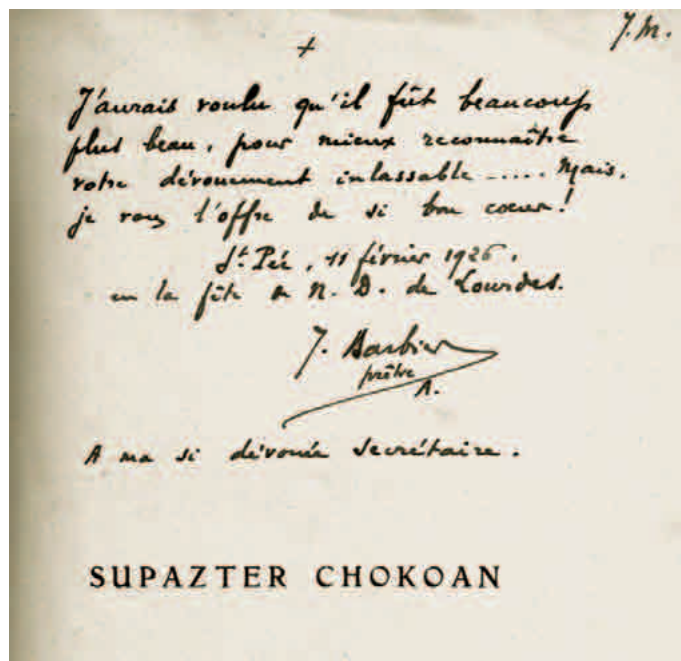 J. M.
+
J'aurais voulu qu'il fût beaucoup
plus beau, pour mieux reconnaître
votre dévouement inlassable ..... Mais,
je vous l'offre de si bon cœur!
St. Pée, 11 février 1926,
en la fête de N. D. de Lourdes.
J. Barbier
prêtre
A.
A ma si dévouée secrétaire.
SUPAZTER CHOKOAN